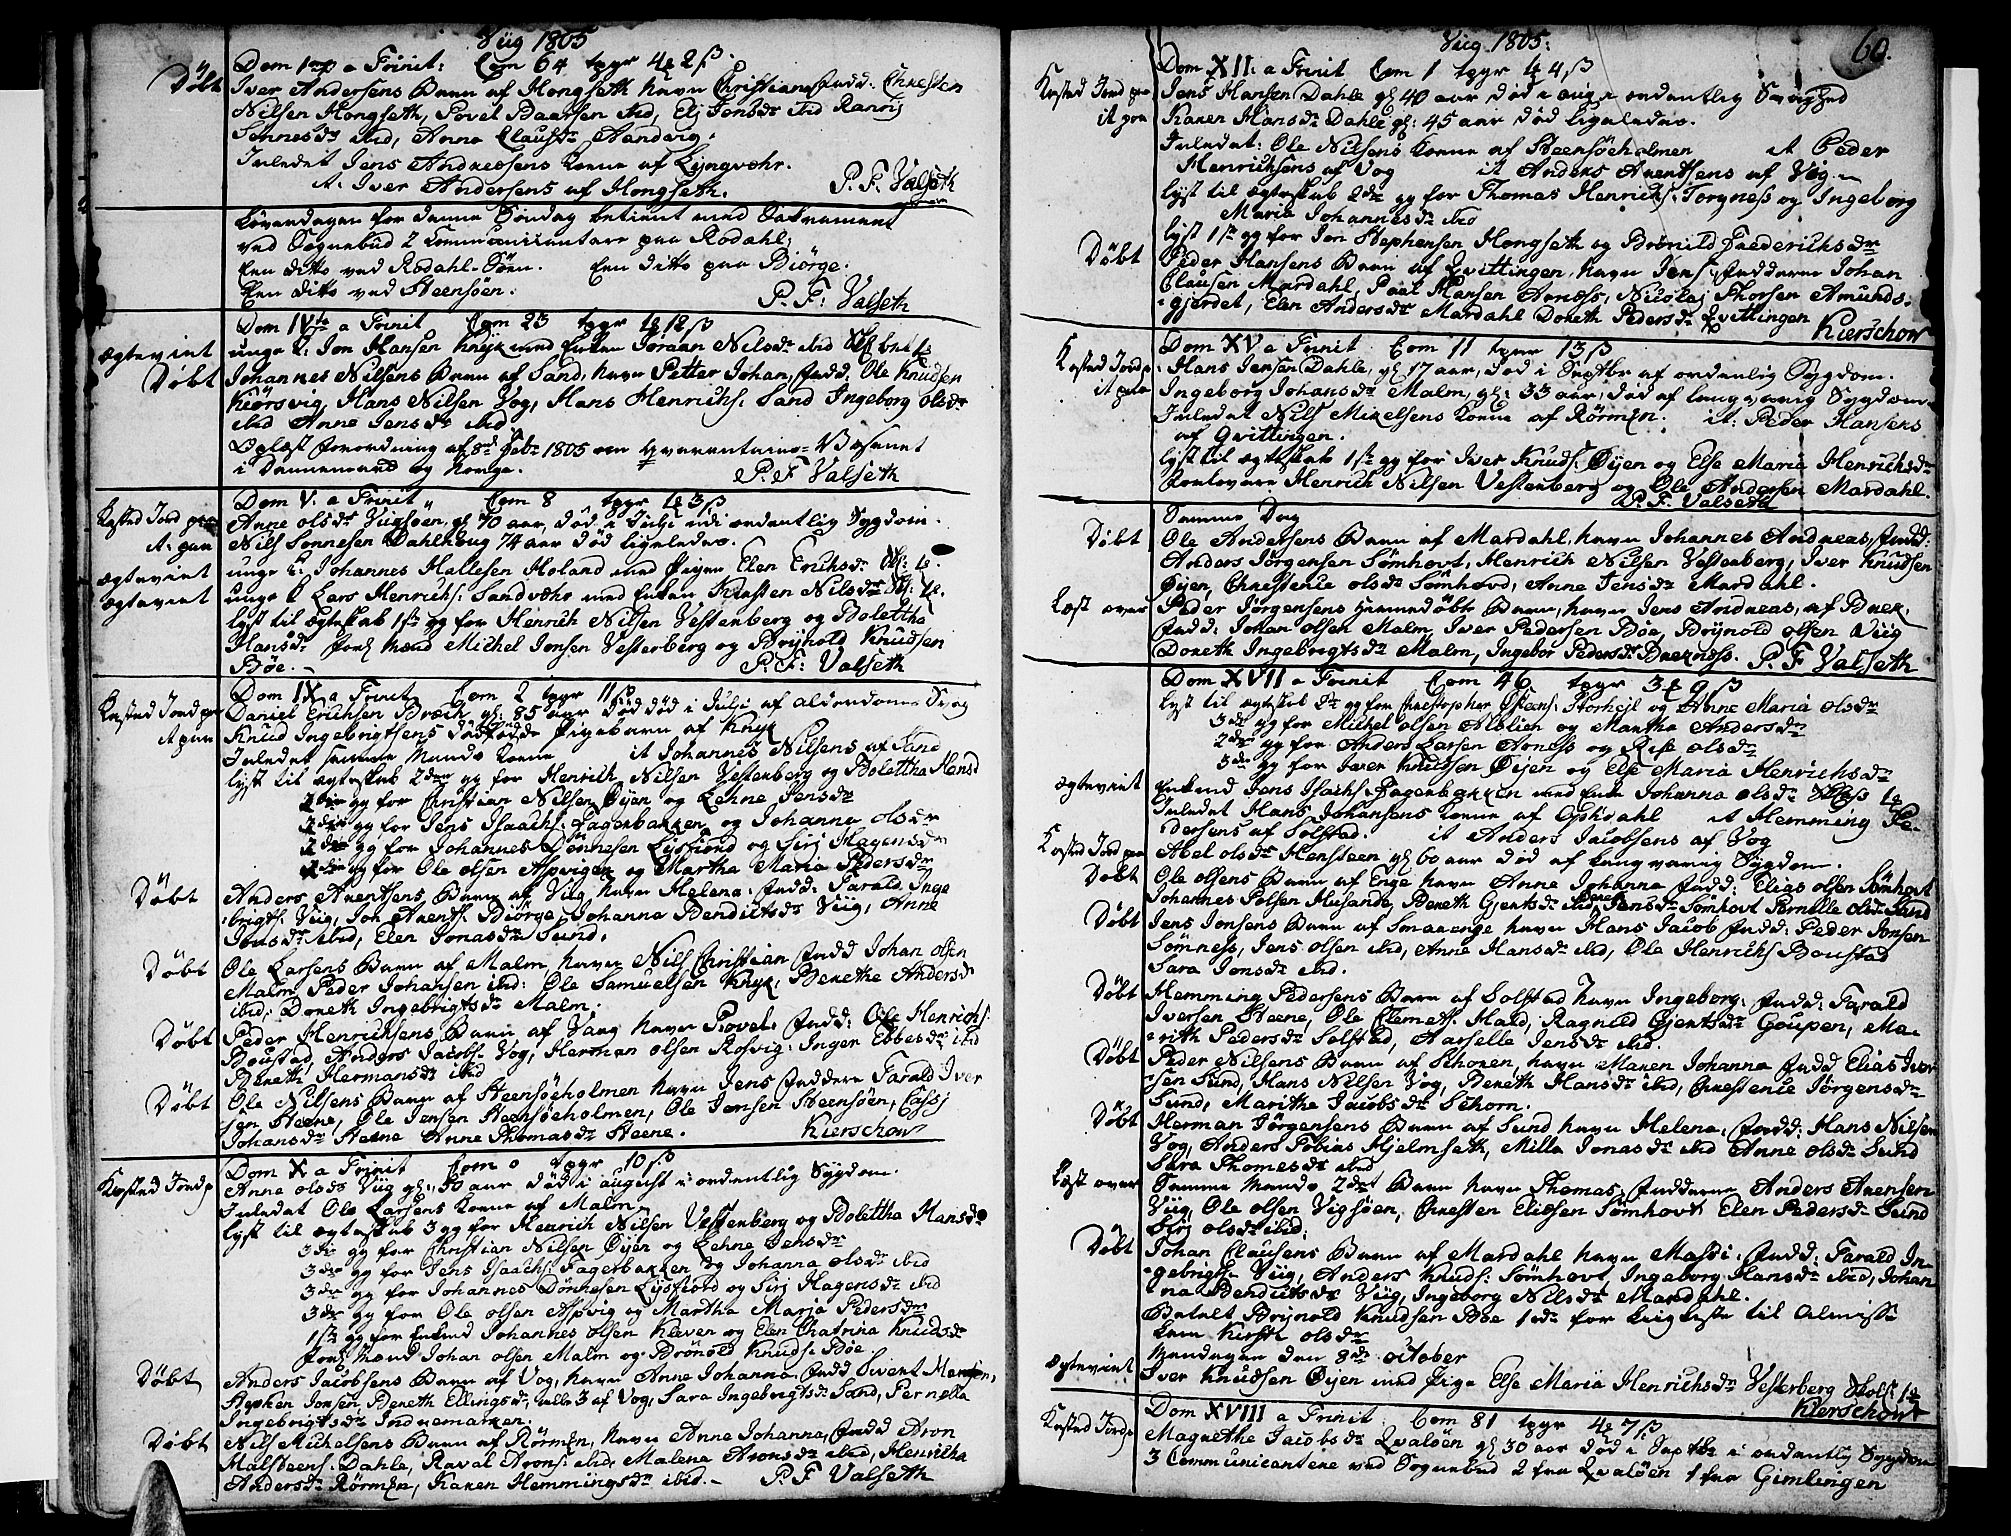 Viig 1805
Dom 1 p a Trinit: Com 64 4 2 ß
Døbt Iver Andersens Barn af Hongseth navn Christiana, fadd: Chresten
Nilsen Hongseth, Povel Baarsen ibid, Elj Jonsdr ibid Randj
Sønnesdr ibid, Anne Clausdr Aandvig.
Inledet Jens Andreæsens Kone af Lyngvær.
it. Iver Andersens af Hongseth. P. F. Valseth
Løverdagen for denne Søndag betient med Sacrament
ved Sognebud 2 Communicantere paa Rodahl,
Een ditto ved Rødahl-Søen. Een ditto paa Biørge.
Een ditto ved Steensøen. P. F. Valseth
Dom IVte a Trinit Com 23
ægteviet unge K: Jon Hansen Knyk med Enken Nilsdr ibid
Døbt Johannes Nilsens Barn af Sand, navn Petter Johan, fadd: Ole Knudsen
Kiørsvig, Hans Nilsen Vog, Hans Henrichs: Sand Ingeborg Olsdr
ibid Anne Jensdr ibid
Oplæst forordning af 8de Febr 1805 om Qvarantaine-Væsenet
i Dannemark og Norge. P. F. Valseth
Dom V. a Trinit Com 8 3 ß
Kasted Jord paa Anne Olsdr Viigsøen, gl 70 aar, død i Julji udi ordentlig Sygdom.
it. paa Nils Sønnesen Dahle 74 aar død ligeledes.
ægteviet unge K: Johannes Hallesen Holand med Pigen Elen Erichsdr
ægteviet unge K Lars Henrichs: Sandvær med Enken Kirsten Nilsdr
lyst til ægteskab 1ste gg for Henrich Nilsen Vestenberg og Bolettha
Hansdr forl Mænd Michel Jonsen Vesterberg og Brynold Knudsen
Bøe. P. F. Valseth
Dom IX a Trinit Com 2 11 ß
Kasted Jord paa Daniel Erichsen Bræch, gl: 85 aar død i Julji af alderdoms Svag
it paa Knud Ingebrigtsens dødfødde Pigebarn af Knyk
Inledet samme Mands Kone it Johannes Nilsens af Sand
lyst til ægteskab 2den gg for Henrich Nilsen Vestenberg og Bolettha Hansd
2den gg for Christian Nilsen Øyen og Lehne Jensdr
2den gg for Jens Isaachs: Fagerbakken og Johanna Olsdr
2den gg for Johannes Dønnesen Lysfiord og Sirj Hagensdr
2den gg for Ole Olsen Aspvigen og Martha Maria Pedersdr
Døbt Anders Arentsens Barn af Viig navn Helena. fadd: Tarald Inge
brigts. Viig, Jon Arents. Biørge, Johanna Bendictsdr Viig, Anne
Jonsdr ibid, Elen Jonasdr Sund.
Døbt Ole Larsens Barn af Malm, navn Nils Christian fadd Johan Olsen
Malm, Peder Johansen ibid: Ole Samuelsen Knyk, Benethe Andersdr
ibid, Doreth Ingebrigtsdr Malm.
Døbt Peder Henrichsens Barn af Vaag navn Povel. fadd: Ole Henrichs:
Boustad, Anders Jacobs. Vog, Herman Olsen Rosvig, Inger Ebbesdr ibid
Bereth Hermansdr ibid
Døbt Ole Nilsens Barn af Steensøeholmen navn Jens faddere Tarald Iver
sen Steene, Ole Jensen Steensøeholmen, Ole Jonsen Steensøen,
Johansdr Steene Anne Thomasdr Steene. Kierschow
Dom X a Trinit Com 0 10 ß
Kasted Jord p Anne Olsdr Viig gl: 50 aar død i august i ordentlig Sygdom.
Inledet Ole Larsens Kone af Malm.
lyst til ægteskab 3 gg for Henrich Nilsen Vestenberg og Bolettha Hansdr
3die gg for Christian Nilsen Øyen og Lehne Jensdr
3die gg for Jens Isaachs: Fagerbakken og Johanna Olsdr ibid
3die gg for Johannes Dønnesen Lysfiord og Sirj Hagensdr ibid
3die gg for Ole Olsen Aspvig og Martha Maria Pedersdr
1ste gg for Enkmd Johannes Olsen Kleven og Elen Chatrina Knudsdr
forl: Mænd Johan Olsen Malm og Brønold Knuds: Bøe
Døbt Anders Jacobsens Barn af Vog, navn Anne Johanna, fadd Sivert
Stephen Jonsen, Bereth Ellingsdr, alle 3 af Vog, Sara Ingebrigtsdr Sand, Pernella
Ingebrigtsdr Indremarken.
Døbt Nils Michelsens Barn af Rørmen, navn Anne Johanna, fadd Aron
Halsteens. Dahle, Raval Arons: ibid, Malena Aronsdr ibid, Henricha
Andersdr Rørmen, Karen Hemmingsdr ibid. P. F. Valseth
Viig 1805. 60.
Dom XII: a Trinit Com 1 44 ß
Kasted Jord paa Jens Hansen Dahle gl 40 aar død i aug i ordentlig Svaghed
it paa Karen Hansdr Dahle gl: 45 aar død ligeledes.
Inledet: Ole Nilsens Kone af Steensøeholmen it Peder
Henrichsens af Vog it Anders Arentsens af Viig
lyst til ægteskab 2den gg for Thomas Henrichs: Torgness og Ingeborg
Maria Johannesdr ibid
lyst 1ste gg for Jon Stephensen Hongseth og Brønild Frederichsdr
Døbt Peder Hansens Barn af Qvittingen, navn Jens, faddere Johan
Clausen Mardahl, Paal Hansen Arness, Nicolaj Thorsen Amunds-
gjerdet, Elen Andersdr Mardahl Doreth Pedersdr Qvittingen Kierschow
Dom XV a Trinit Com 11 13 ß
Kasted Jord p Hans Jensen Dahle, gl 17 aar, død i Septbr af ordenlig Sygdom.
it paa Ingeborg Johansdr Malm, gl: 33 aar, død af langvarig Sygdom
Inledet Nils Michelsens Kone af Rørmen. it: Peder Hansens
af Qvittingen.
lyst til ægteskab 1ste gg for Iver Knuds: Øyen og Else Maria Henrichsdr
Henrich Nilsen Vestenberg og Ole Andersen Mardahl.
P. F. Valseth
Samme Dag
Døbt Ole Andersens Barn af Mardahl, navn Johannes Andreas, fadd:
Anders Jörgensen Sømhovt, Henrich Nilsen Vestenberg, Iver Knudsen
Øyen, Chrestence Olsdr Sømhovd, Anne Jensdr Mardahl.
Læst over Peder Jörgensens hiemmedøbte Barn, navn Jens Andreas, af Bræk.
fadd: Johan Olsen Malm, Iver Pedersen Bøe, Brynold Olsen Viig
Doreth Ingebrigtsdr Malm, Ingebor Pedersdr Brækness. P. F Valseth
Dom XVII a Trinit Com 46 3 9 ß
lyst til ægteskab gg for Chrestopher Storhejl og Anne Maria Olsdr
3die gg for Michel Olsen Aslien og Martha Andersdr
2den gg for Anders Larsen Arness og Olsdr
3die gg for Iver Knudsen Øyen og Else Maria Henrichsdr
ægteviet Enkmd Jens Isachs: Fagerbakken med Enke Johanna Olsdr
Inledet Hans Johansens Kone af Ophdahl it Hemming Pe-
dersens af Solstad. it Anders Jacobsens af Vog
Kasted Jord paa Abel Olsdr Hensteen gl 60 aar død af langvarig Sygdom.
Døbt Ole Olsens Barn af Enge navn Anne Johanna fadd: Elias Olsen Sømhovt
Johannes Polsen Husande, Bereth Gjertsdr ibid, Jensdr Sømhovt Pernelle Olsdr Sand
Døbt Jens Jonsens Barn af Smaaenge navn Hans Jacob fadd: Peder Jonsen
Sømness, Jens Olsen ibid, Anne Hansdr ibid, Ole Henrichs Boustad
Sara Jonsdr ibid.
Døbt Hemming Pedersens Barn af Solstad navn Ingeborg. fadd: Tarald
Iversen Steene, Ole Clemets: Hald, Ragnild Gjertsdr Goupen, Ma-
rith Pedersdr Solstad, Aarselle Jensdr ibid.
Døbt Peder Nilsens Barn af Skoren, navn Maren Johanna fadd Elias Iver
sen Sund, Hans Nilsen Vog, Bereth Hansdr ibid, Chrestence Jörgensdr
Sund, Marithe Jacobsdr Schorn.
Døbt Herman Jörgensens Barn af Sund navn Helena. fadd: Hans Nilsen
Vog, Anders Tobias Hjelmseth, Milla Jonasdr ibid Anne Olsdr Sund
Sara Thomesdr ibid
Læst over Samme Mands 2det Barn navn Thomas, fadderne Anders Arensen
Viig, Ole Olsen Vigsøen, Chresten Eliesen Sømhovt Elen Pedersdr Sund
Sirj Olsdr ibid.
Døbt Johan Clausens Barn af Mardahl navn Massi. fadd: Tarald In-
gebrigts Viig, Anders Knuds: Sømhovt, Ingeborg Hansdr ibid, Johan
na Bendictsdr Viig, Ingeborg Nilsdr Mardahl.
Betalt Brynold Knudsen Bøe 1 for til Almisse
Lem Kirsti Olsdr
Mandagen den 8de October
ægteviet Iver Knudsen Øyen med Pige Else Maria Henrichsdr Vesterberg
Kierschow
Dom XVIII a Trinit. Com 81 4 7 ß
Kasted Jord p Magrethe Jacobsdr Qvaløen gl 30 aar død i Septbr i ordentlig Sygdom
3 Communicantere ved Sognebud 2 fra Qvaløen 1 fra Gimlingen